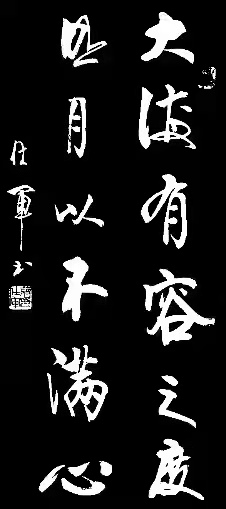 大海有容之度
明月以不满心
軍书